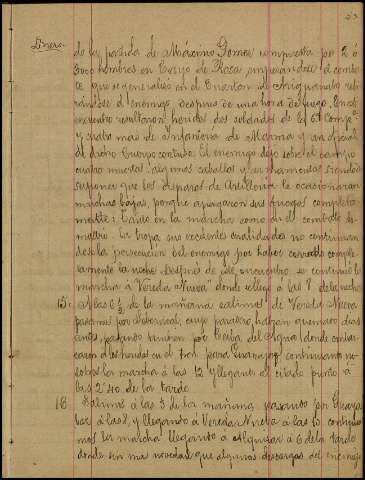 Enero.
de la partida de Máximo Gomez compuesta por 2 ó
3000 hombres en Ceiga de Rosa, empezandose el comba-
te que se generalisó en el Cuarton de Ariguanabo reti-
randose el enemigo despues de una hora de fuego. En este
encuentro resultaron heridos dos soldados de la 6ª Compª
y cuatro mas de Infanteria de Marina y un oficial
de dicho Cuerpo contuso. El enemigo dejó sobre el campo
cuatro muertos, seis mas caballos y armamentos siendo de
suponer que los disparos de Artilleria le ocasionaran
muchas bajas, porque apagaron sus fuegos completa-
mente: Tanto en la marcha como en el combate de-
mostró la tropa sus excelentes cualidades no continuan-
dose la persecucion del enemigo por haber cerrado comple-
tamente la noche. Despues de este encuentro se continuó la
marcha á Vereda Nueva donde se llegó á las 8 de la noche
15. A las 6 ½ de la mañana salimos de Vereda Nueva
pasamos por cuyo paradero, habian quemado dias
antes, pasando tambien por Ceiba del Agua donde embar-
caron á los heridos en el tren para Guanajay continuando no-
sotros la marcha á las 12 y llegando al citado punto á
las 2'40 de la tarde
18 Salimos á las 5 de la mañana pasando por Guaya-
bal á las 8, y llegando á Vereda Nueva á las 10 continua-
mos la marcha llegando á Alquizar á 6 de la tarde
donde sin mas novedad que algunas descargas del enemigo